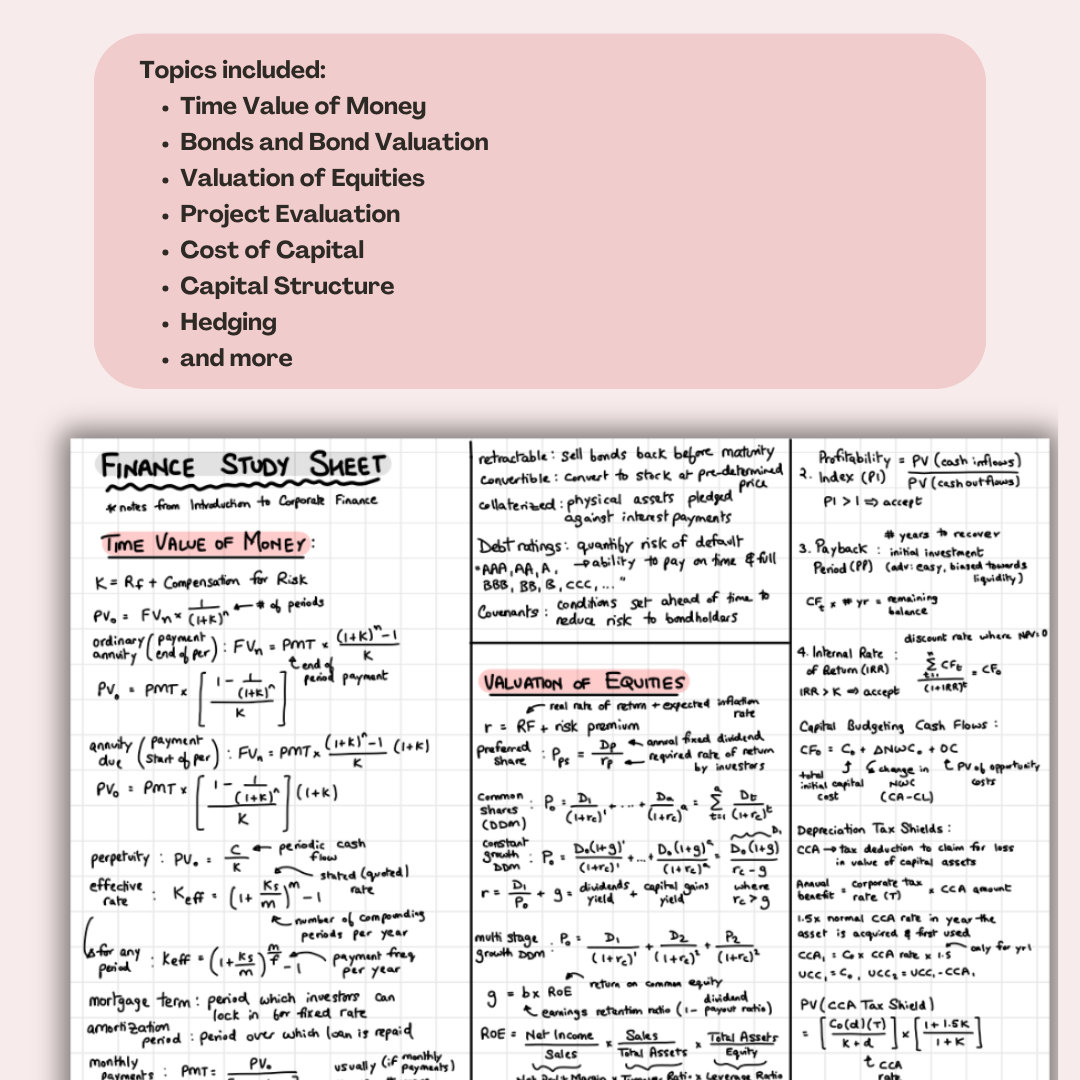 Topics included:
• Time Value of Money
• Bonds and Bond Valuation
• Valuation of Equities
• Project Evaluation
• Cost of Capital
• Capital Structure
• Hedging
• and more
FINANCE STUDY SHEET
*notes from Introduction to Corporate Finance
TIME VALUE OF MONEY:
K = RF + Compensation for Risk
PV₀ = FVn × 1/(1+K)ⁿ ← # of periods
ordinary annuity (payment end of per) : FVn = PMT × ((1+K)ⁿ-1)/K
↑ end of period payment
PV₀ = PMT × [(1 - 1/(1+K)ⁿ)/K]
annuity due (payment start of per) : FVn = PMT × ((1+K)ⁿ-1)/K (1+K)
PV₀ = PMT × [(1 - 1/(1+K)ⁿ)/K] (1+K)
perpetuity : PV₀ = C/K ← periodic cash flow
effective rate : Keff = (1 + Ks/m)ᵐ - 1
← stated (quoted) rate
↖ number of compounding periods per year
↳ for any period : Keff = (1 + Ks/m)^(m/f) - 1 ← payment freq per year
mortgage term : period which investors can
lock in for fixed rate
amortization
period : period over which loan is repaid
monthly
payments : PMT = PV₀
usually (if monthly payments)
retractable : sell bonds back before maturity
convertible : convert to stock at pre-determined
price
collaterized : physical assets pledged
against interest payments
Debt ratings : quantify risk of default
→ ability to pay on time & full
"AAA, AA, A,
BBB, BB, B, CCC, ... "
Covenants : conditions set ahead of time to
reduce risk to bondholders
VALUATION OF EQUITIES
↙ real rate of return + expected inflation rate
r = RF + risk premium
preferred share : Pps = Dp/rp
← annual fixed dividend
← required rate of return by investors
Common Shares (DDM) : P₀ = D₁/(1+rc)¹ + ... + Dn/(1+rc)ⁿ = Σ t=1 Dt/(1+rc)ᵗ
D₁
constant growth DDM : P₀ = D₀(1+g)¹/(1+rc)¹ + ... + D₀(1+g)ⁿ/(1+rc)ⁿ = D₀(1+g)/(rc - g)
r = D₁/P₀ + g = dividends yield + capital gains yield
where rc > g
multi stage growth DDM : P₀ = D₁/(1+rc)¹ + D₂/(1+rc)² + P₂/(1+rc)²
g = b x RoE ← return on common equity
↖ earnings retention ratio (1 - dividend payout ratio)
RoE = Net Income/Sales × Sales/Total Assets × Total Assets/Equity
Net Profit Margin × Turnover Ratio × Leverage Ratio
2. Profitability Index (PI) = PV (cash inflows)/PV (cash outflows)
PI > 1 ⇒ accept
3. Payback Period (PP) : # years to recover initial investment
(adv: easy, biased towards liquidity)
CFt × # yr = remaining balance
discount rate where NPV=0
4. Internal Rate of Return (IRR) : Σ t=1 n CFt/(1+IRR)ᵗ = CF₀
IRR > K ⇒ accept
Capital Budgeting Cash Flows :
CF₀ = C₀ + ΔNWC₀ + OC
total initial capital cost
change in NWC (CA-CL)
PV of opportunity costs
Depreciation Tax Shields :
CCA → tax deduction to claim for loss
in value of capital assets
Annual benefit = corporate tax rate (T) × CCA amount
1.5x normal CCA rate in year the
asset is acquired & first used
CCA₁ = C₀ × CCA rate × 1.5 ← only for yr 1
UCC₁ = C₀, UCC₂ = UCC₁ - CCA₁
PV(CCA Tax Shield)
= [C₀(d)(T)/(K+d)] × [(1+1.5K)/(1+K)]
↑ CCA rate